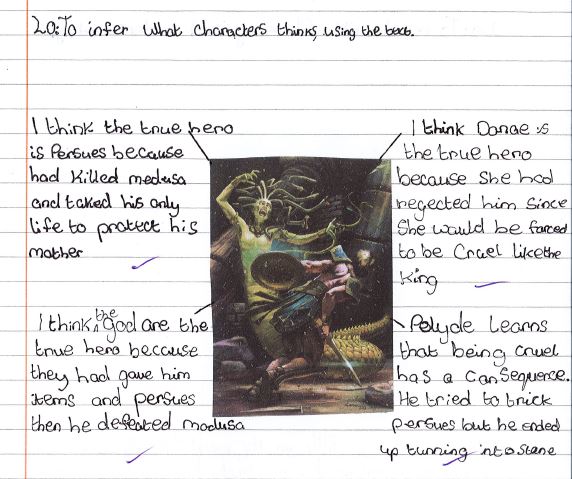 Lo: To infer what characters thinks, using the text.
I think the true hero
is Persues because
had killed medusa
and taked his only
life to protect his
mother
I think Danae is
the true hero
because she had
regected him since
She would be farced
to be Cruel like the
King
I think the god are the
true hero because
they had gave him
items and persues
then he defeated madusa
Polyde Learns
that being cruel
has a Consequence.
He tried to trick
persues but he ended
up turning into stane